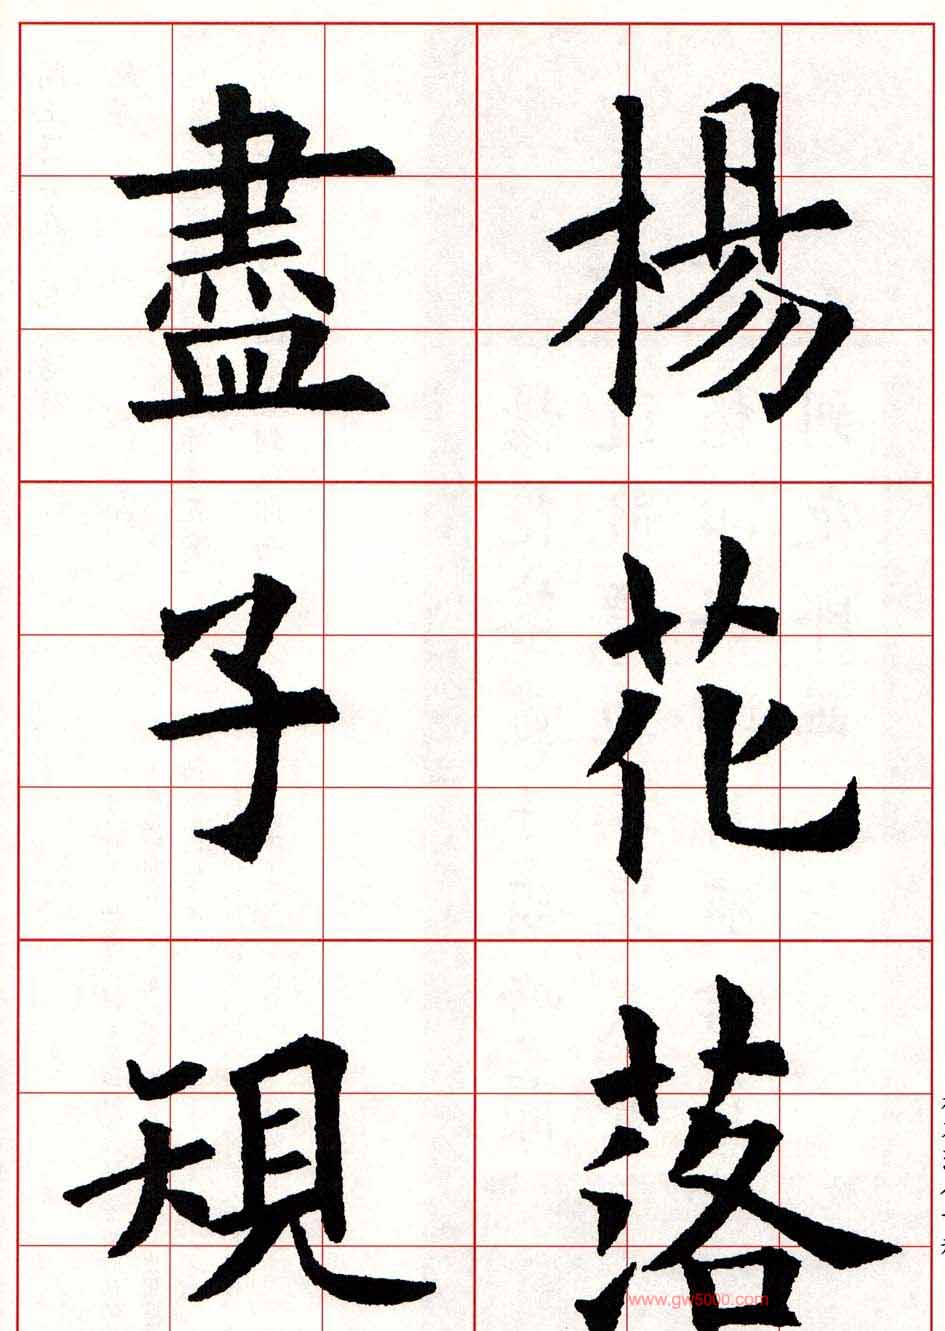 楊花落
盡子䂓
www.gw5000.com